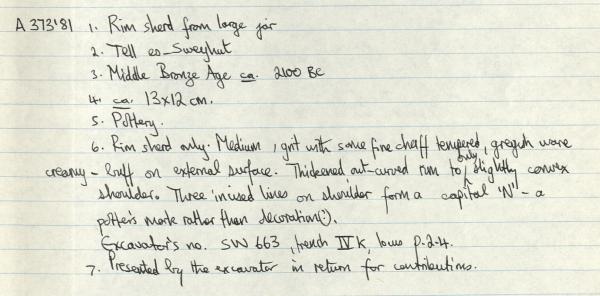 A 373'81 1. Rim sherd from large jar
2. Tell es-Sweyhat
3. Middle Bronze Age ca. 2100 BC
4. ca. 13x12 cm.
5. Pottery.
6. Rim sherd only. Medium, grit with some fine chaff tempered, greyish ware
creamy-buff on external surface. Thickened, out-curved rim to only slightly convex
shoulder. Three incised lines on shoulder form a capital 'N' - a
potter's mark rather than decoration(?).
Excavator's no. SW 663, trench IV K, locus P.2.4.
7. Presented by the excavator in return for contributions.